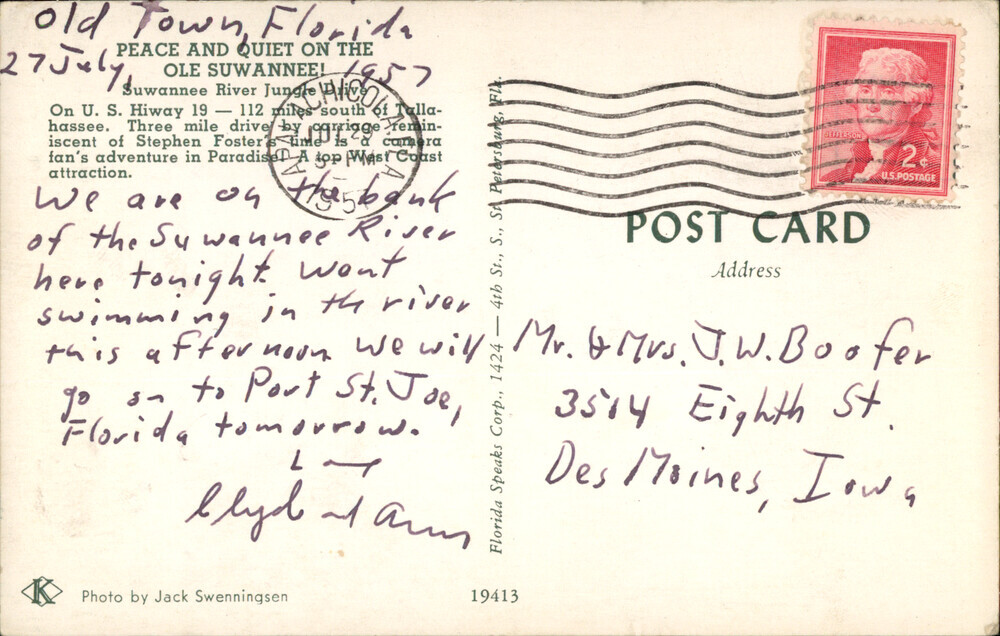 Old Town, Florida
27 July, 1957
PEACE AND QUIET ON THE
OLE SUWANNEE!
Suwannee River Jungle Drive
On U. S. Hiway 19 — 112 miles south of Talla-
hassee. Three mile drive by carriage remin-
iscent of Stephen Foster's time is a camera
fan's adventure in Paradise. A top West Coast
attraction.
We are on the bank
of the Suwannee River
here tonight. Went
swimming in the river
this afternoon. We will
go on to Port St. Joe,
Florida tomorrow.
Clyde and Ann
K
Photo by Jack Swenningsen
APALACHICOLA
JUL 29
PM
FLA
Florida Speaks Corp., 1424 — 4th St., S., St. Petersburg, Fla.
19413
JEFFERSON
2¢
U.S. POSTAGE
POST CARD
Address
Mr. & Mrs. J. W. Boofer
3514 Eighth St.
Des Moines, Iowa